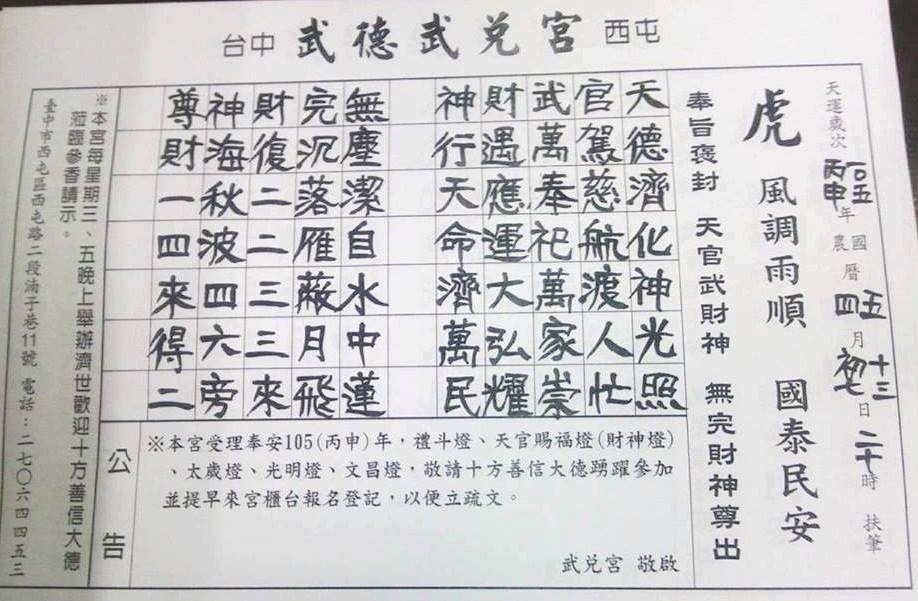 台中 武德武兌宮 西屯
天運歲次 一○五 丙申 年 國農曆 五 四 月 十三 初七 日 二十 時 扶筆
虎 風調雨順 國泰民安
奉旨褒封 天官武財神 無完財神尊出
天德濟化神光照
官駕慈航渡人忙
武萬奉祀萬家崇
財遇應運大弘耀
神行天命濟萬民
無塵潔自水中蓮
完沉落雁蔽月飛
財復二二三三來
神海秋波四六旁
尊財一四來得二
公告
※本宮受理奉安105(丙申)年，禮斗燈、天官賜福燈(財神燈)
、太歲燈、光明燈、文昌燈，敬請十方善信大德踴躍參加
並提早來宮櫃台報名登記，以便立疏文。
武兌宮 敬啟
※本宮每星期三、五晚上舉辦濟世歡迎十方善信大德
蒞臨參香請示。
臺中市西屯區西屯路二段湳子巷11號 電話：二七○六四四五三